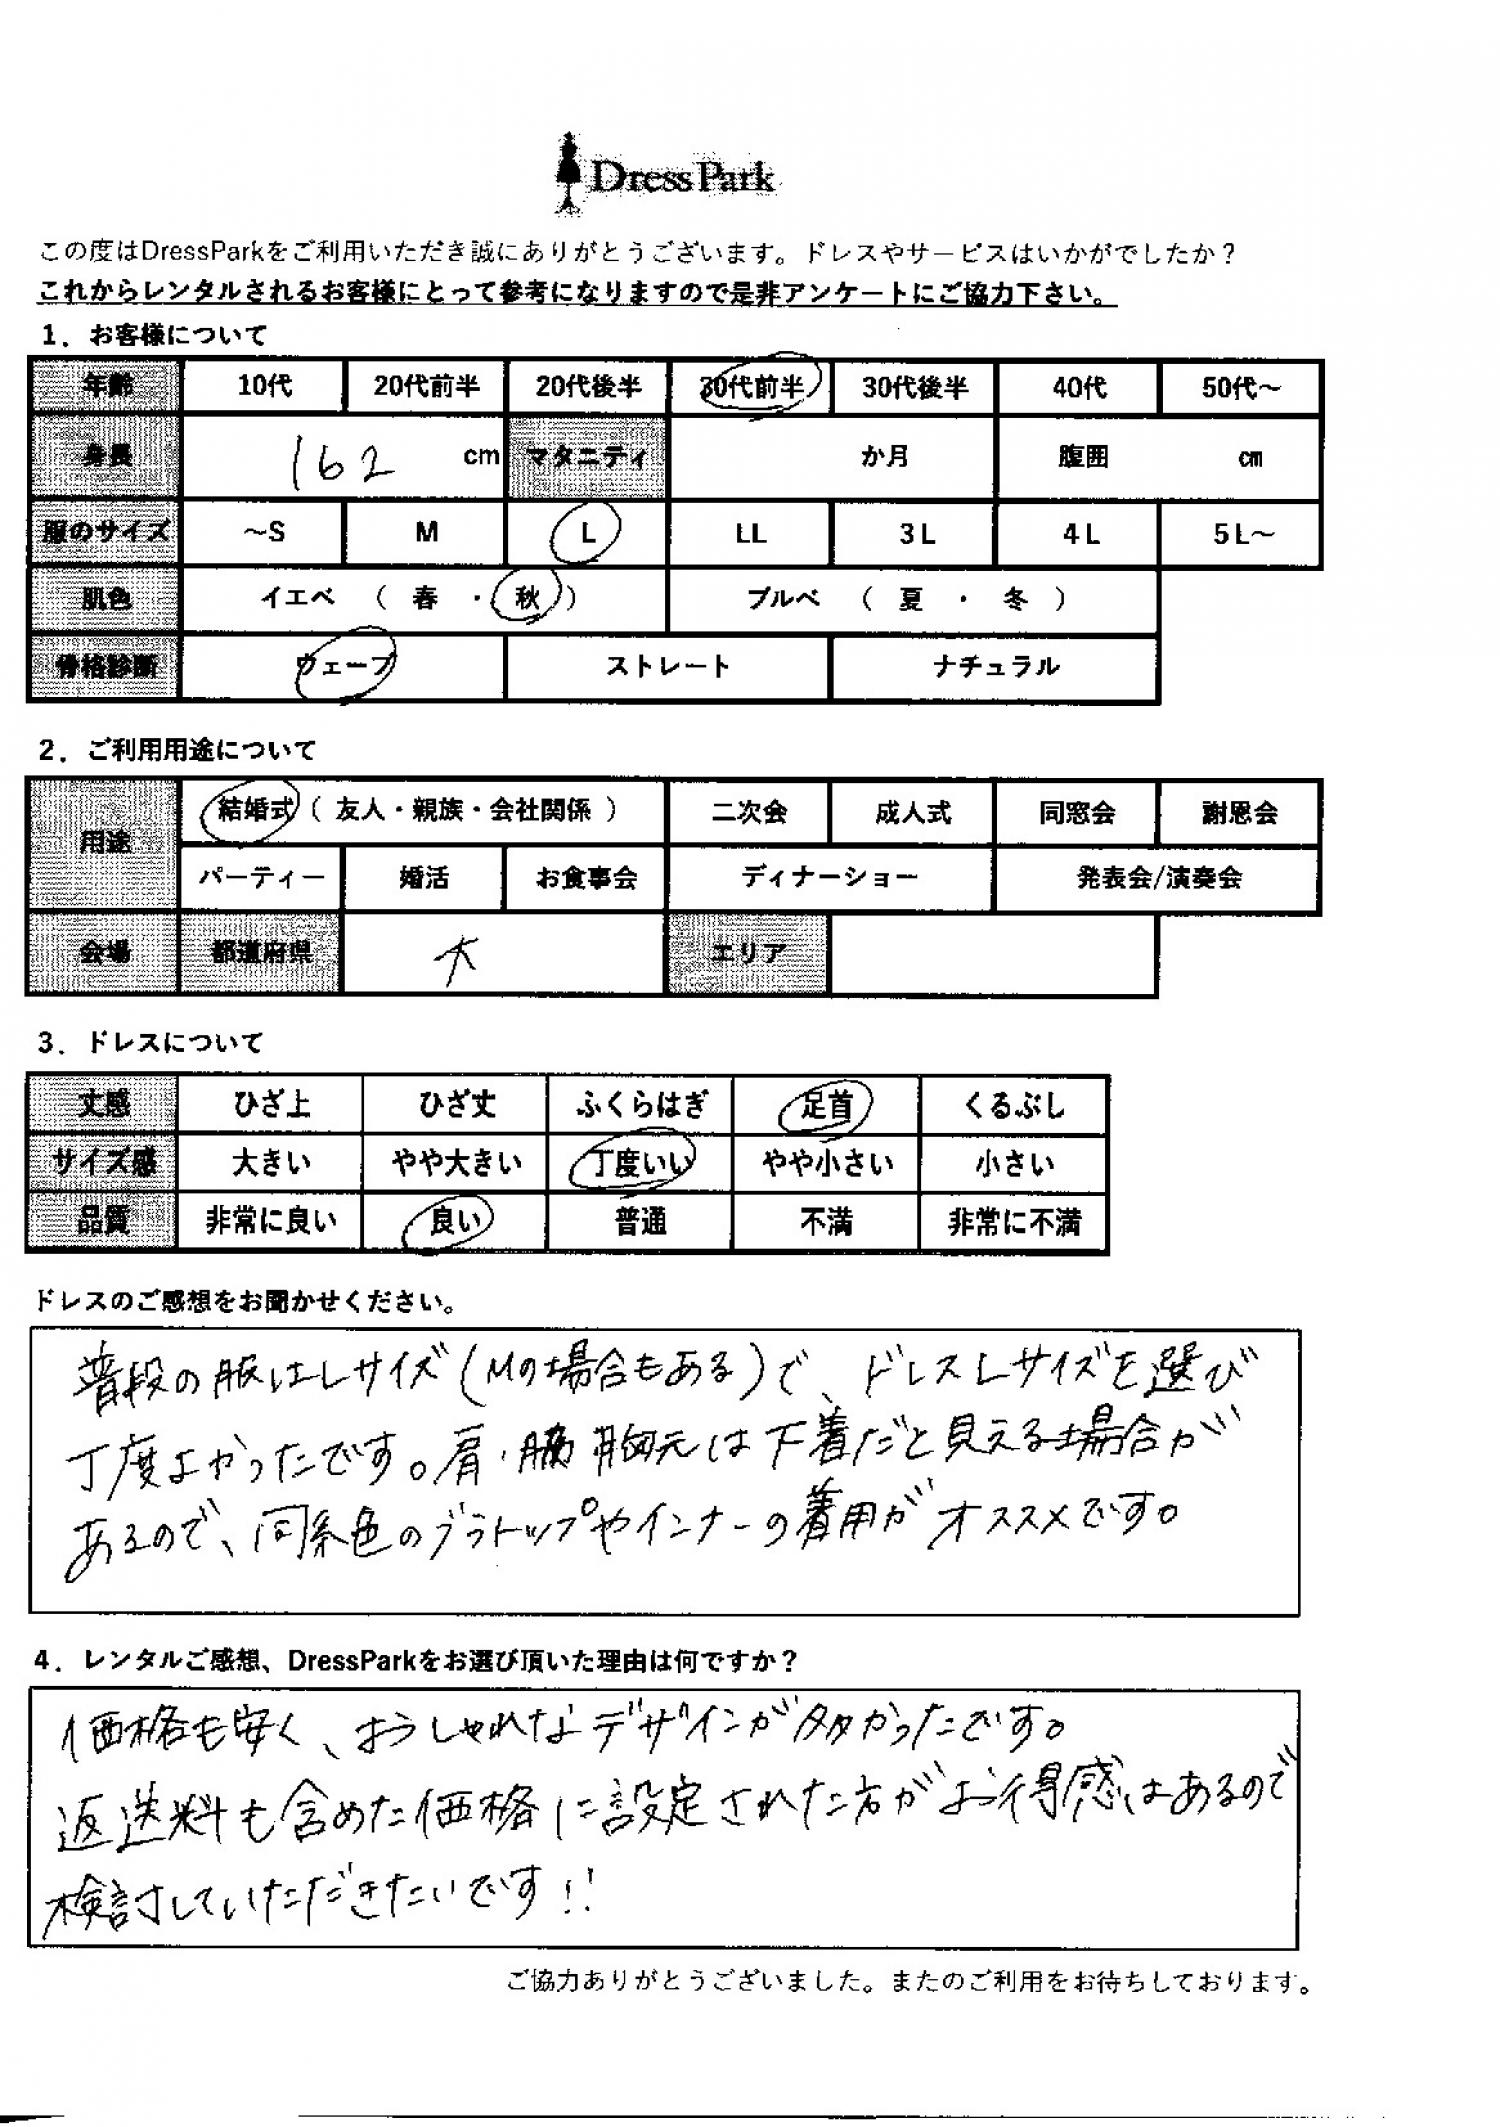 DressPark
この度はDressParkをご利用いただき誠にありがとうございます。ドレスやサービスはいかがでしたか？
これからレンタルされるお客様にとって参考になりますので是非アンケートにご協力下さい。
1．お客様について
年齢 10代 20代前半 20代後半 30代前半 30代後半 40代 50代～
身長 162 cm マタニティ か月 腹囲 cm
服のサイズ ～S M L LL 3L 4L 5L～
肌色 イエベ （ 春 ・ 秋 ） ブルベ （ 夏 ・ 冬 ）
骨格診断 ウェーブ ストレート ナチュラル
2．ご利用用途について
用途 結婚式（ 友人・親族・会社関係 ） 二次会 成人式 同窓会 謝恩会
パーティー 婚活 お食事会 ディナーショー 発表会/演奏会
会場 都道府県 エリア
3．ドレスについて
丈感 ひざ上 ひざ丈 ふくらはぎ 足首 くるぶし
サイズ感 大きい やや大きい 丁度いい やや小さい 小さい
品質 非常に良い 良い 普通 不満 非常に不満
ドレスのご感想をお聞かせください。
普段の服はLサイズ(Mの場合もある)で、ドレスLサイズを選び
丁度よかったです。肩・脇・胸元は下着だと見える場合が
あるので、同系色のブラトップやインナーの着用がオススメです。
4．レンタルご感想、DressParkをお選び頂いた理由は何ですか？
価格も安く、おしゃれなデザインが多かったです。
返送料も含めた価格に設定された方がお得感はあるので
検討していただきたいです!!
ご協力ありがとうございました。またのご利用をお待ちしております。